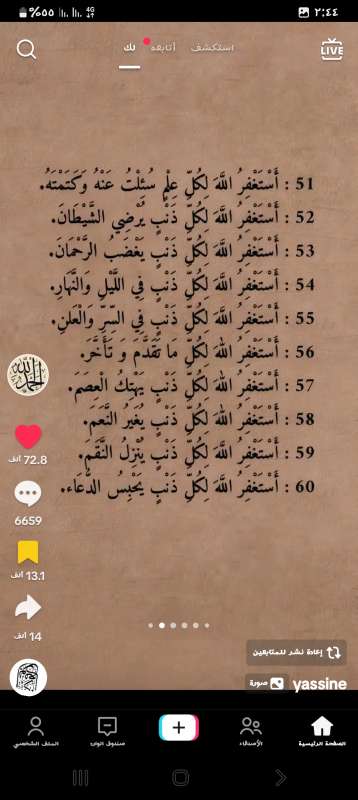 ٢:٤٤
4G
%٥٥
LIVE
استكشف
أتابعه
لك
51 : أَسْتَغْفِرُ اللَّهَ لِكُلِّ عِلْمٍ سُئِلْتُ عَنْهُ وَكَتَمْتَهُ.
52 : أَسْتَغْفِرُ اللَّهَ لِكُلِّ ذَنْبٍ يُرْضِي الشَّيْطَانَ.
53 : أَسْتَغْفِرُ اللَّهَ لِكُلِّ ذَنْبٍ يَغْضَبُ الرَّحْمَانَ.
54 : أَسْتَغْفِرُ اللَّهَ لِكُلِّ ذَنْبٍ فِي اللَّيْلِ وَالنَّهَارِ.
55 : أَسْتَغْفِرُ اللَّهَ لِكُلِّ ذَنْبٍ فِي السِّرِّ وَالْعَلَنِ.
56 : أَسْتَغْفِرُ اللهَ لِكُلِّ مَا تَقَدَّمَ وَ تَأَخَّرَ.
57 : أَسْتَغْفِرُ اللهَ لِكُلِّ ذَنْبٍ يَهْتِكُ الْعِصَمَ.
58 : أَسْتَغْفِرُ اللهَ لِكُلِّ ذَنْبٍ يُغَيرُ النَّعَمَ.
59 : أَسْتَغْفِرُ اللَّهَ لِكُلِّ ذَنْبٍ يُنْزِلُ النَّقَمَ.
60 : أَسْتَغْفِرُ اللَّهَ لِكُلِّ ذَنْبٍ يَحْبِسُ الدُّعَاء.
الحمد لله
72.8 ألف
6659
13.1 ألف
14 ألف
إعادة نشر للمتابعين
yassine
صورة
الصفحة الرئيسية
الأصدقاء
صندوق الوارد
الملف الشخصي